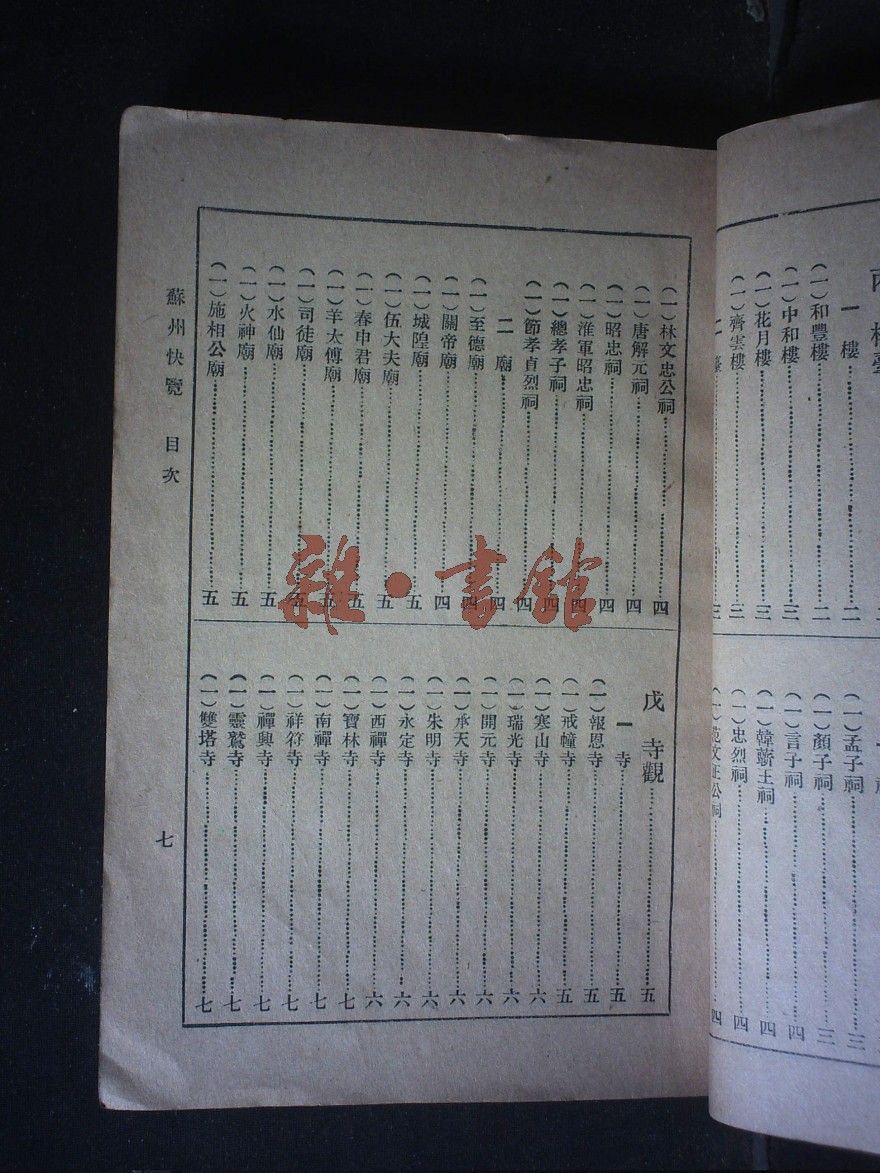 一 樓……二
(一)和豐樓……二
(一)中和樓……三
(一)花月樓……三
(一)齊雲樓……三
二 臺……三
(一)孟子祠……三
(一)顏子祠……三
(一)言子祠……四
(一)韓蘄王祠……四
(一)忠烈祠……四
(一)范文正公祠……四
(一)林文忠公祠……四
(一)唐解元祠……四
(一)昭忠祠……四
(一)淮軍昭忠祠……四
(一)總孝子祠……四
(一)節孝貞烈祠……四
二 廟……四
(一)至德廟……四
(一)關帝廟……四
(一)城隍廟……五
(一)伍大夫廟……五
(一)春申君廟……五
(一)羊太傅廟……五
(一)司徒廟……五
(一)水仙廟……五
(一)火神廟……五
(一)施相公廟……五
戊 寺觀……五
一 寺……五
(一)報恩寺……五
(一)戒幢寺……五
(一)寒山寺……六
(一)瑞光寺……六
(一)開元寺……六
(一)承天寺……六
(一)朱明寺……六
(一)永定寺……六
(一)西禪寺……六
(一)寶林寺……七
(一)南禪寺……七
(一)祥符寺……七
(一)禪興寺……七
(一)靈鷲寺……七
(一)雙塔寺……七
蘇州快覽 目次 七
雜·書館